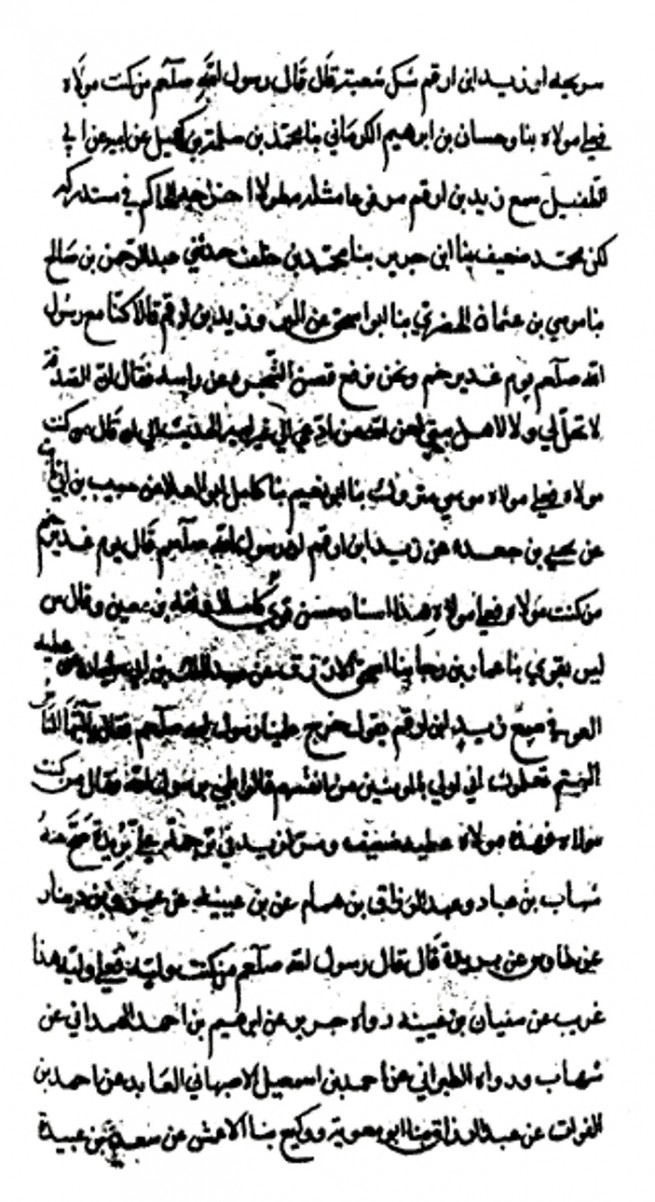 سريحه او زيد ابن ارقم شك شعبة قال قال رسول الله صلعم من كنت مولاه
فعلي مولاه بنا وحسان بن ابرهيم الكرماني بنا محمد بن سلمة بن كهيل عن ابيه عن ابي
الطفيل سمع زيد بن ارقم مرفوعا مثله مطولا اخرجه الحاكم في مستدركه
لكن محمد ضعيف بنا ابن جرير بنا محمد بن خلف حدثني عبد الرحمن بن صالح
بنا موسي بن عثمان الحضرمي بنا ابو اسحق عن البرا وزيد بن ارقم قالا كنا مع رسول
الله صلعم يوم غدير خم ونحن نرفع غصن الشجره عن راسه فقال ان الصدقة
لا تحل لي ولا لاهل بيتي لعن الله من ادعي الي غير ابيه من كنت
مولاه فعلي مولاه موسي متروك بنا ابو نعيم بنا كامل ابو العلا عن حبيب بن ابي ثابت
عن يحيي بن جعده عن زيد ابن ارقم ان رسول الله صلعم قال يوم غدير خم
من كنت مولاه فعلي مولاه هذا اسناد حسن قوي كامل وثقه بن معين وقال س
ليس بقوي بنا عمار بن رجا بنا اسحق الازرق عن عبد الملك بن ابي سليمان عن عطيه
العوفي سمع زيد ابن ارقم يقول خرج علينا رسول الله صلعم فقال يا ايها الناس
الستم تعلمون اني اولي بالمومنين من انفسهم قالوا بلي يرسول الله فقال من كنت
مولاه فهذا مولاه عطيه ضعيف ومر لزيد في ترجمة علي بريدة صح عنه
شهاب بن عباد وعبد الرزاق بن همام عن بن عيينه عن عمرو بن دينار
عن طاوس عن بريدة قال قال رسول الله صلعم من كنت وليه فعلي وليه هذا
غريب عن سفيان بن عيينه رواه جرير عن ابرهيم بن احمد الهمداني عن
شهاب ورواه الطبراني عن احمد بن اسمعيل الاصبهاني العابد عن احمد بن
الفرات عن عبد الرزاق بنا ابو معوية ووكيع بنا الاعمش عن سعد بن عبيدة